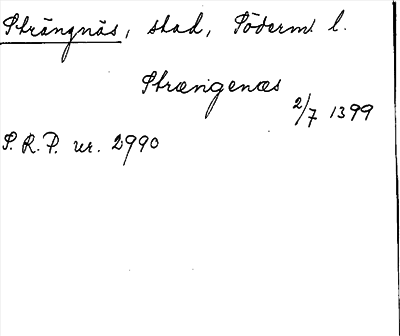 Strängnäs, stad, Söderml l.
Strængenæs
2/7 1399
S.R.P. nr. 2990